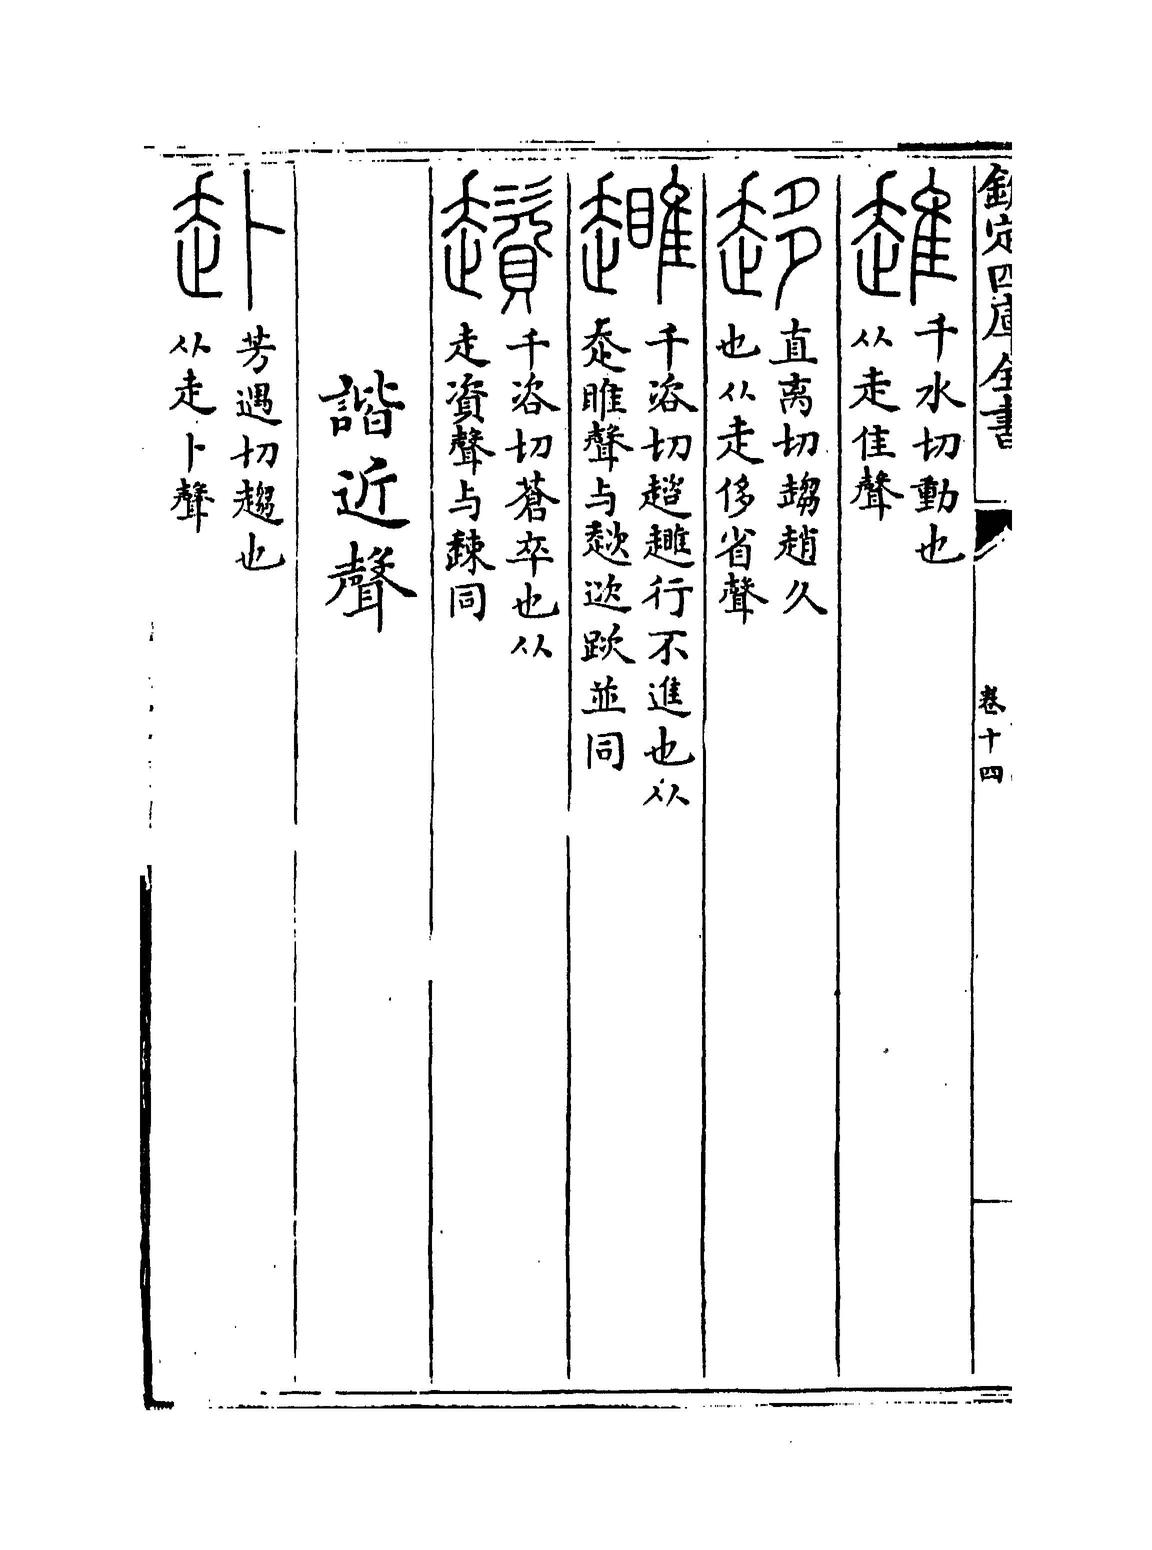 欽定四庫全書
卷十四
趡
千水切動也
从走隹聲
趍
直离切趨趙久
也从走侈省聲
千咨切 行不進也从
走睢聲与趑 並同
千咨切蒼卒也从
走資聲与 同
諧近聲
赴
芳遇切趨也
从走卜聲